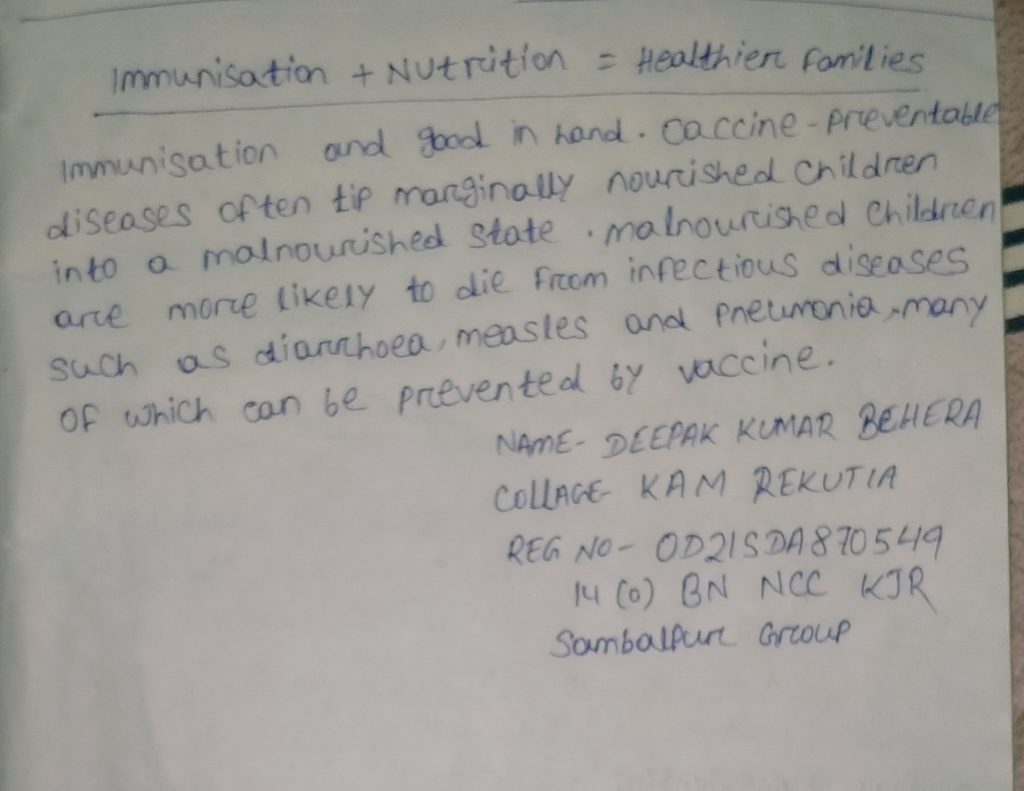 Immunisation + Nutrition = Healthier Families
Immunisation and good in hand. Caccine-preventable
diseases often tip marginally nourished children
into a malnourished state. malnourished children
are more likely to die from infectious diseases
such as diarrhoea, measles and pneumonia, many
of which can be prevented by vaccine.
NAME- DEEPAK KUMAR BEHERA
COLLAGE- KAM REKUTIA
REG NO- OD21SDA870549
14 (O) BN NCC KJR
Sambalpur Group